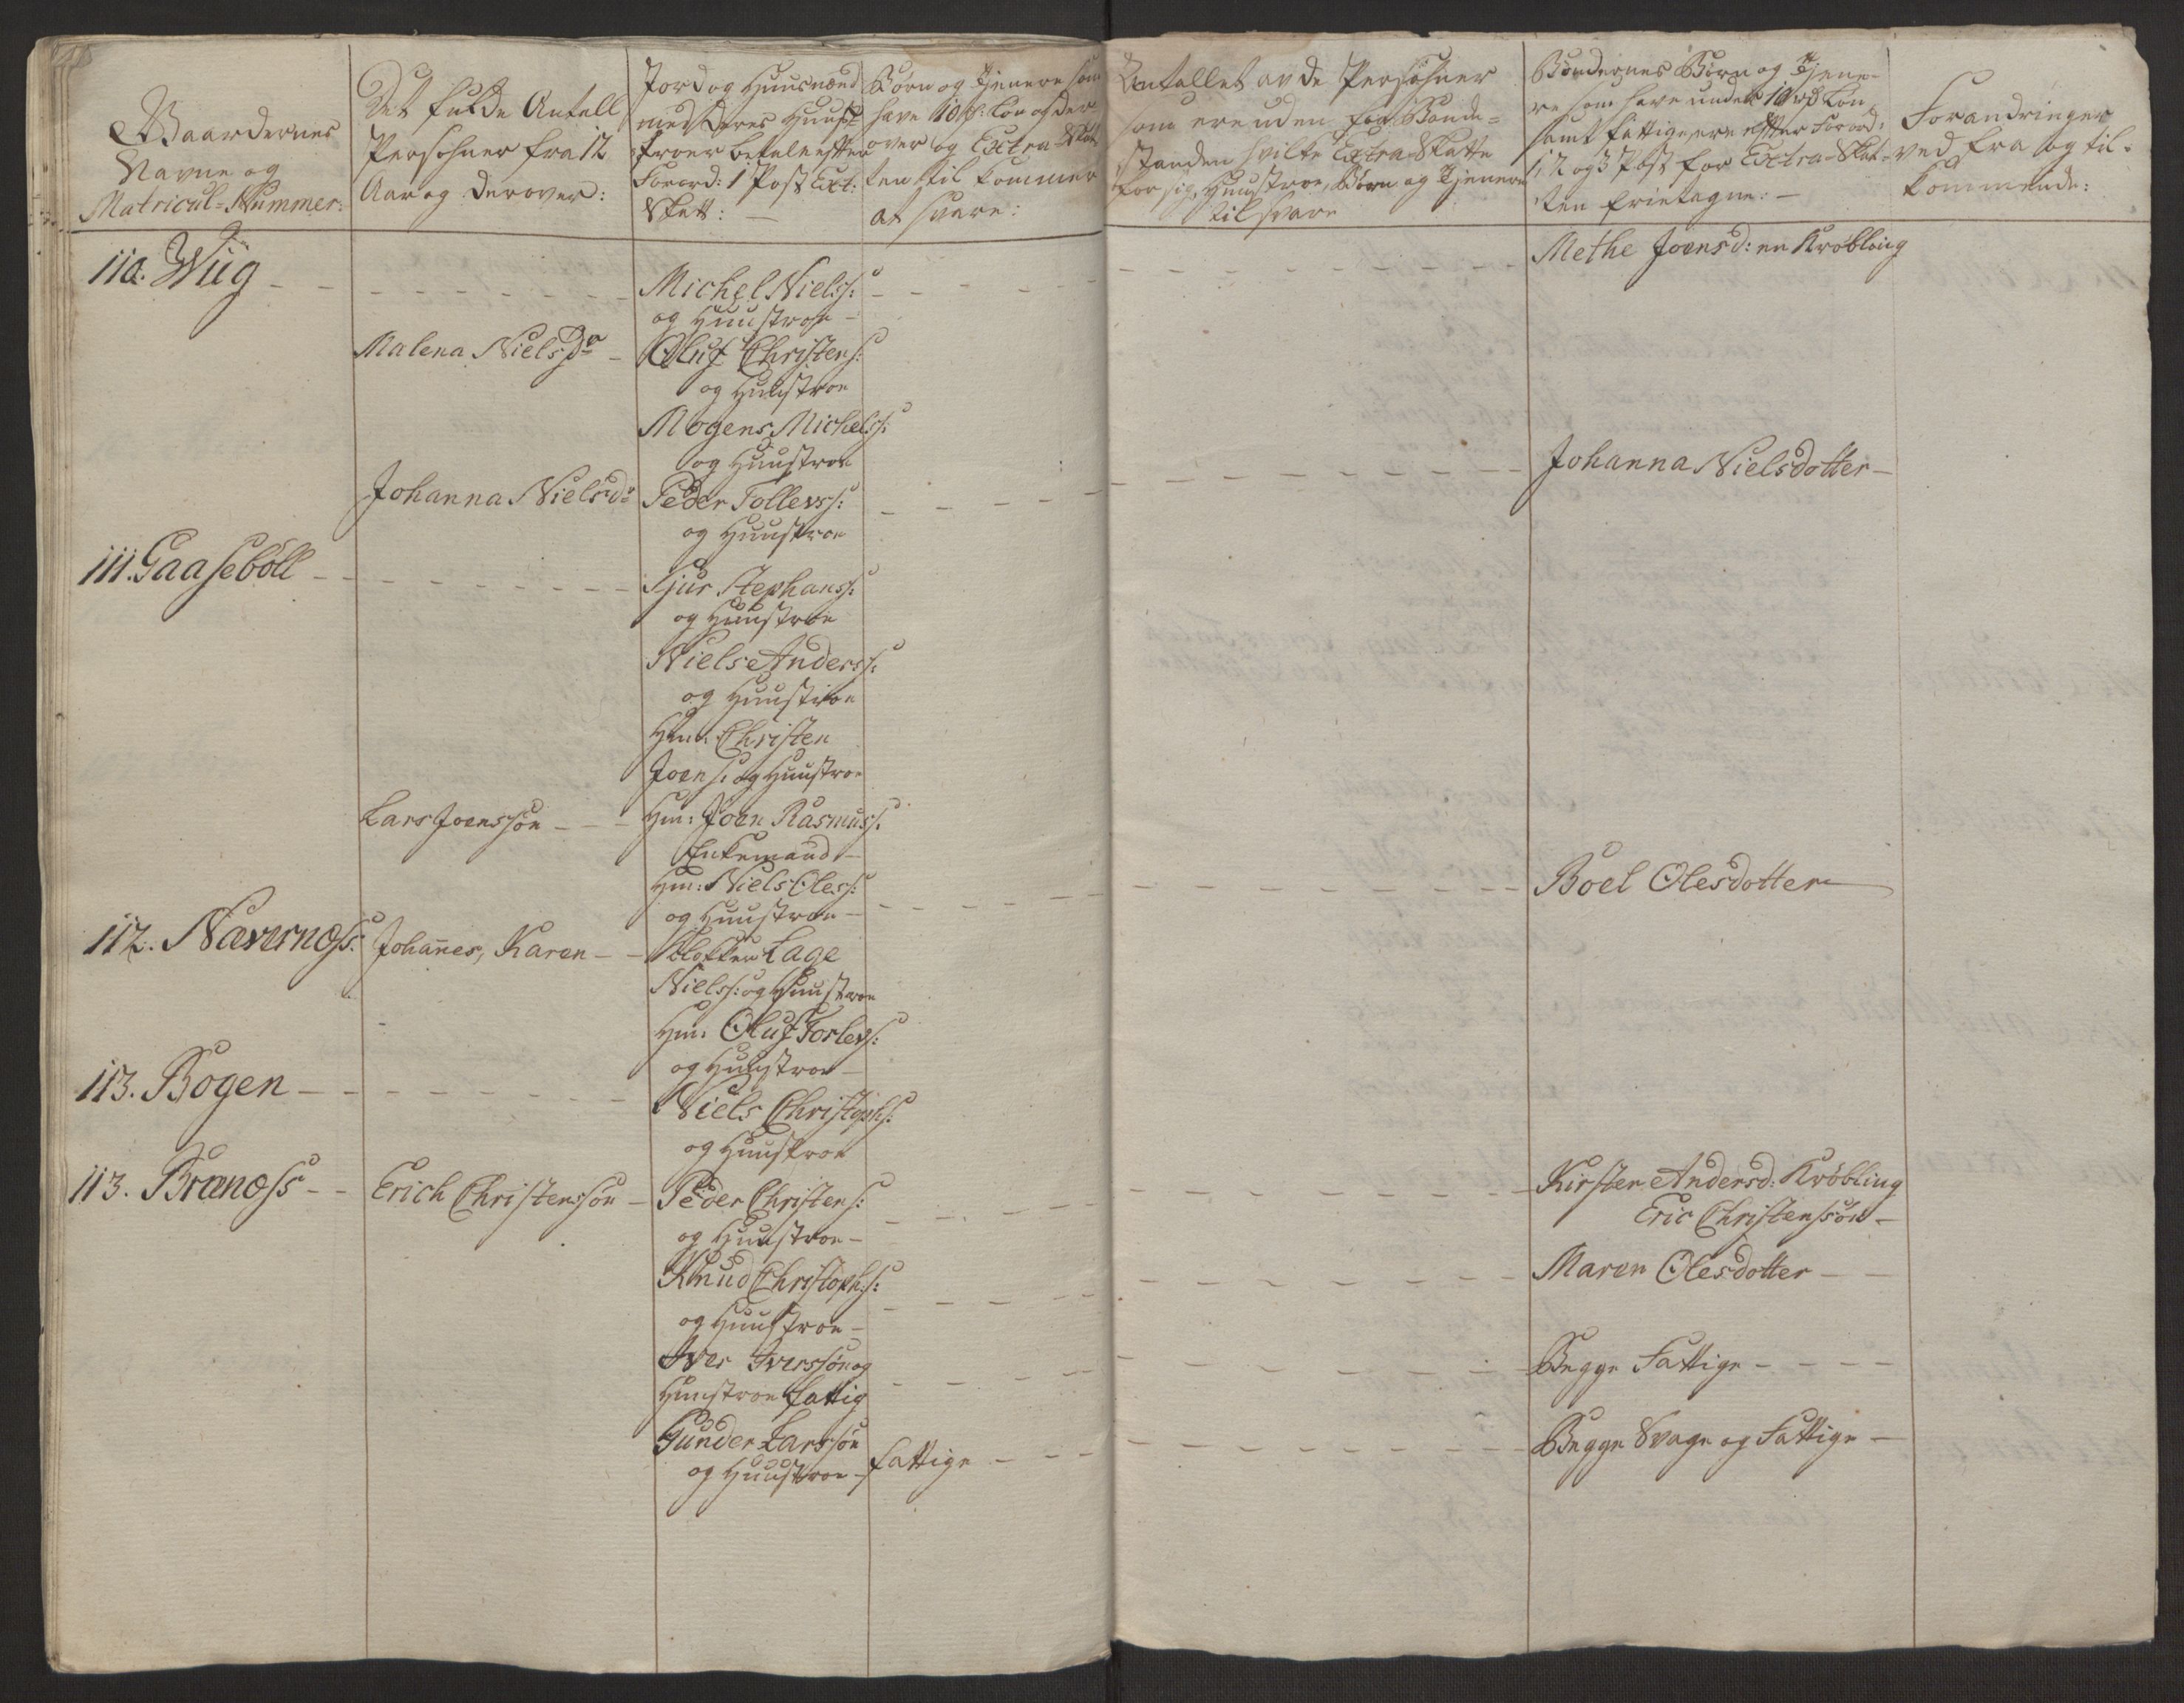 Gaardernes
Navne og
Matricul-Nummer:
Det fulde Antall
Persohner fra 12
Aar og derover:
Jord og Huusmænd
med deres Huus-
troer betale efter
Forord: 1 Post Ext:
Skatt: —
Børn og Tjenere som
have 10 rd: Løn og der
over og Extra Skat-
ten til kommer
at svare:
Antallet av de Persohner
som ere uden for Bonde-
standen hvilke Extra-Skatte
for sig, Huustroe, Børn og Tjenere
til svare
Bøndernes Børn og Tjene-
re som have under 10 rd Løn
samt fattige, ere efter Forord:
1, 2 og 3 Post for Extra-Skat-
ten frietagne: —
Forandringer
ved fra og til-
kommende:
110. Wiig
Michel Niels:
og Huustroe —
Methe Joensd: en Krøbling
Malena Nielsdr
Oluf Christens:
og Huustroe
Mogens Michels:
og Huustroe
Johanna Nielsdotter —
Johanna Nielsdr
Peder Tollevs:
og Huustroe
111. Gaasebøll
Sjur Stephans:
og Huustroe
Niels Anders:
og Huustroe
Hm: Christen
Joens: og Huustroe
Lars Joenssøn
Hm: Joen Rasmus:
Enkemand —
Hm: Niels Oles:
og Huustroe —
Boel Olesdotter
112. Næverness:
Johanes, Karen
Klokker Lage
Niels: og Huustroe
Hm: Oluf Torlevs:
og Huustroe —
113. Bogen
Niels Christophs:
og Huustroe
113. Bræness
Erich Christenssøn
Peder Christens:
og Huustroe —
Kirsten Andersd: Krøbling
Eric Christenssøn —
Knud Christophs:
og Huustroe —
Maren Olesdotter —
Iver Iverssøn og
Huustroe fattig
Begge Fattige
Gunder Larssøn
og Huustroe —
fattige
Begge Svage og Fattige —